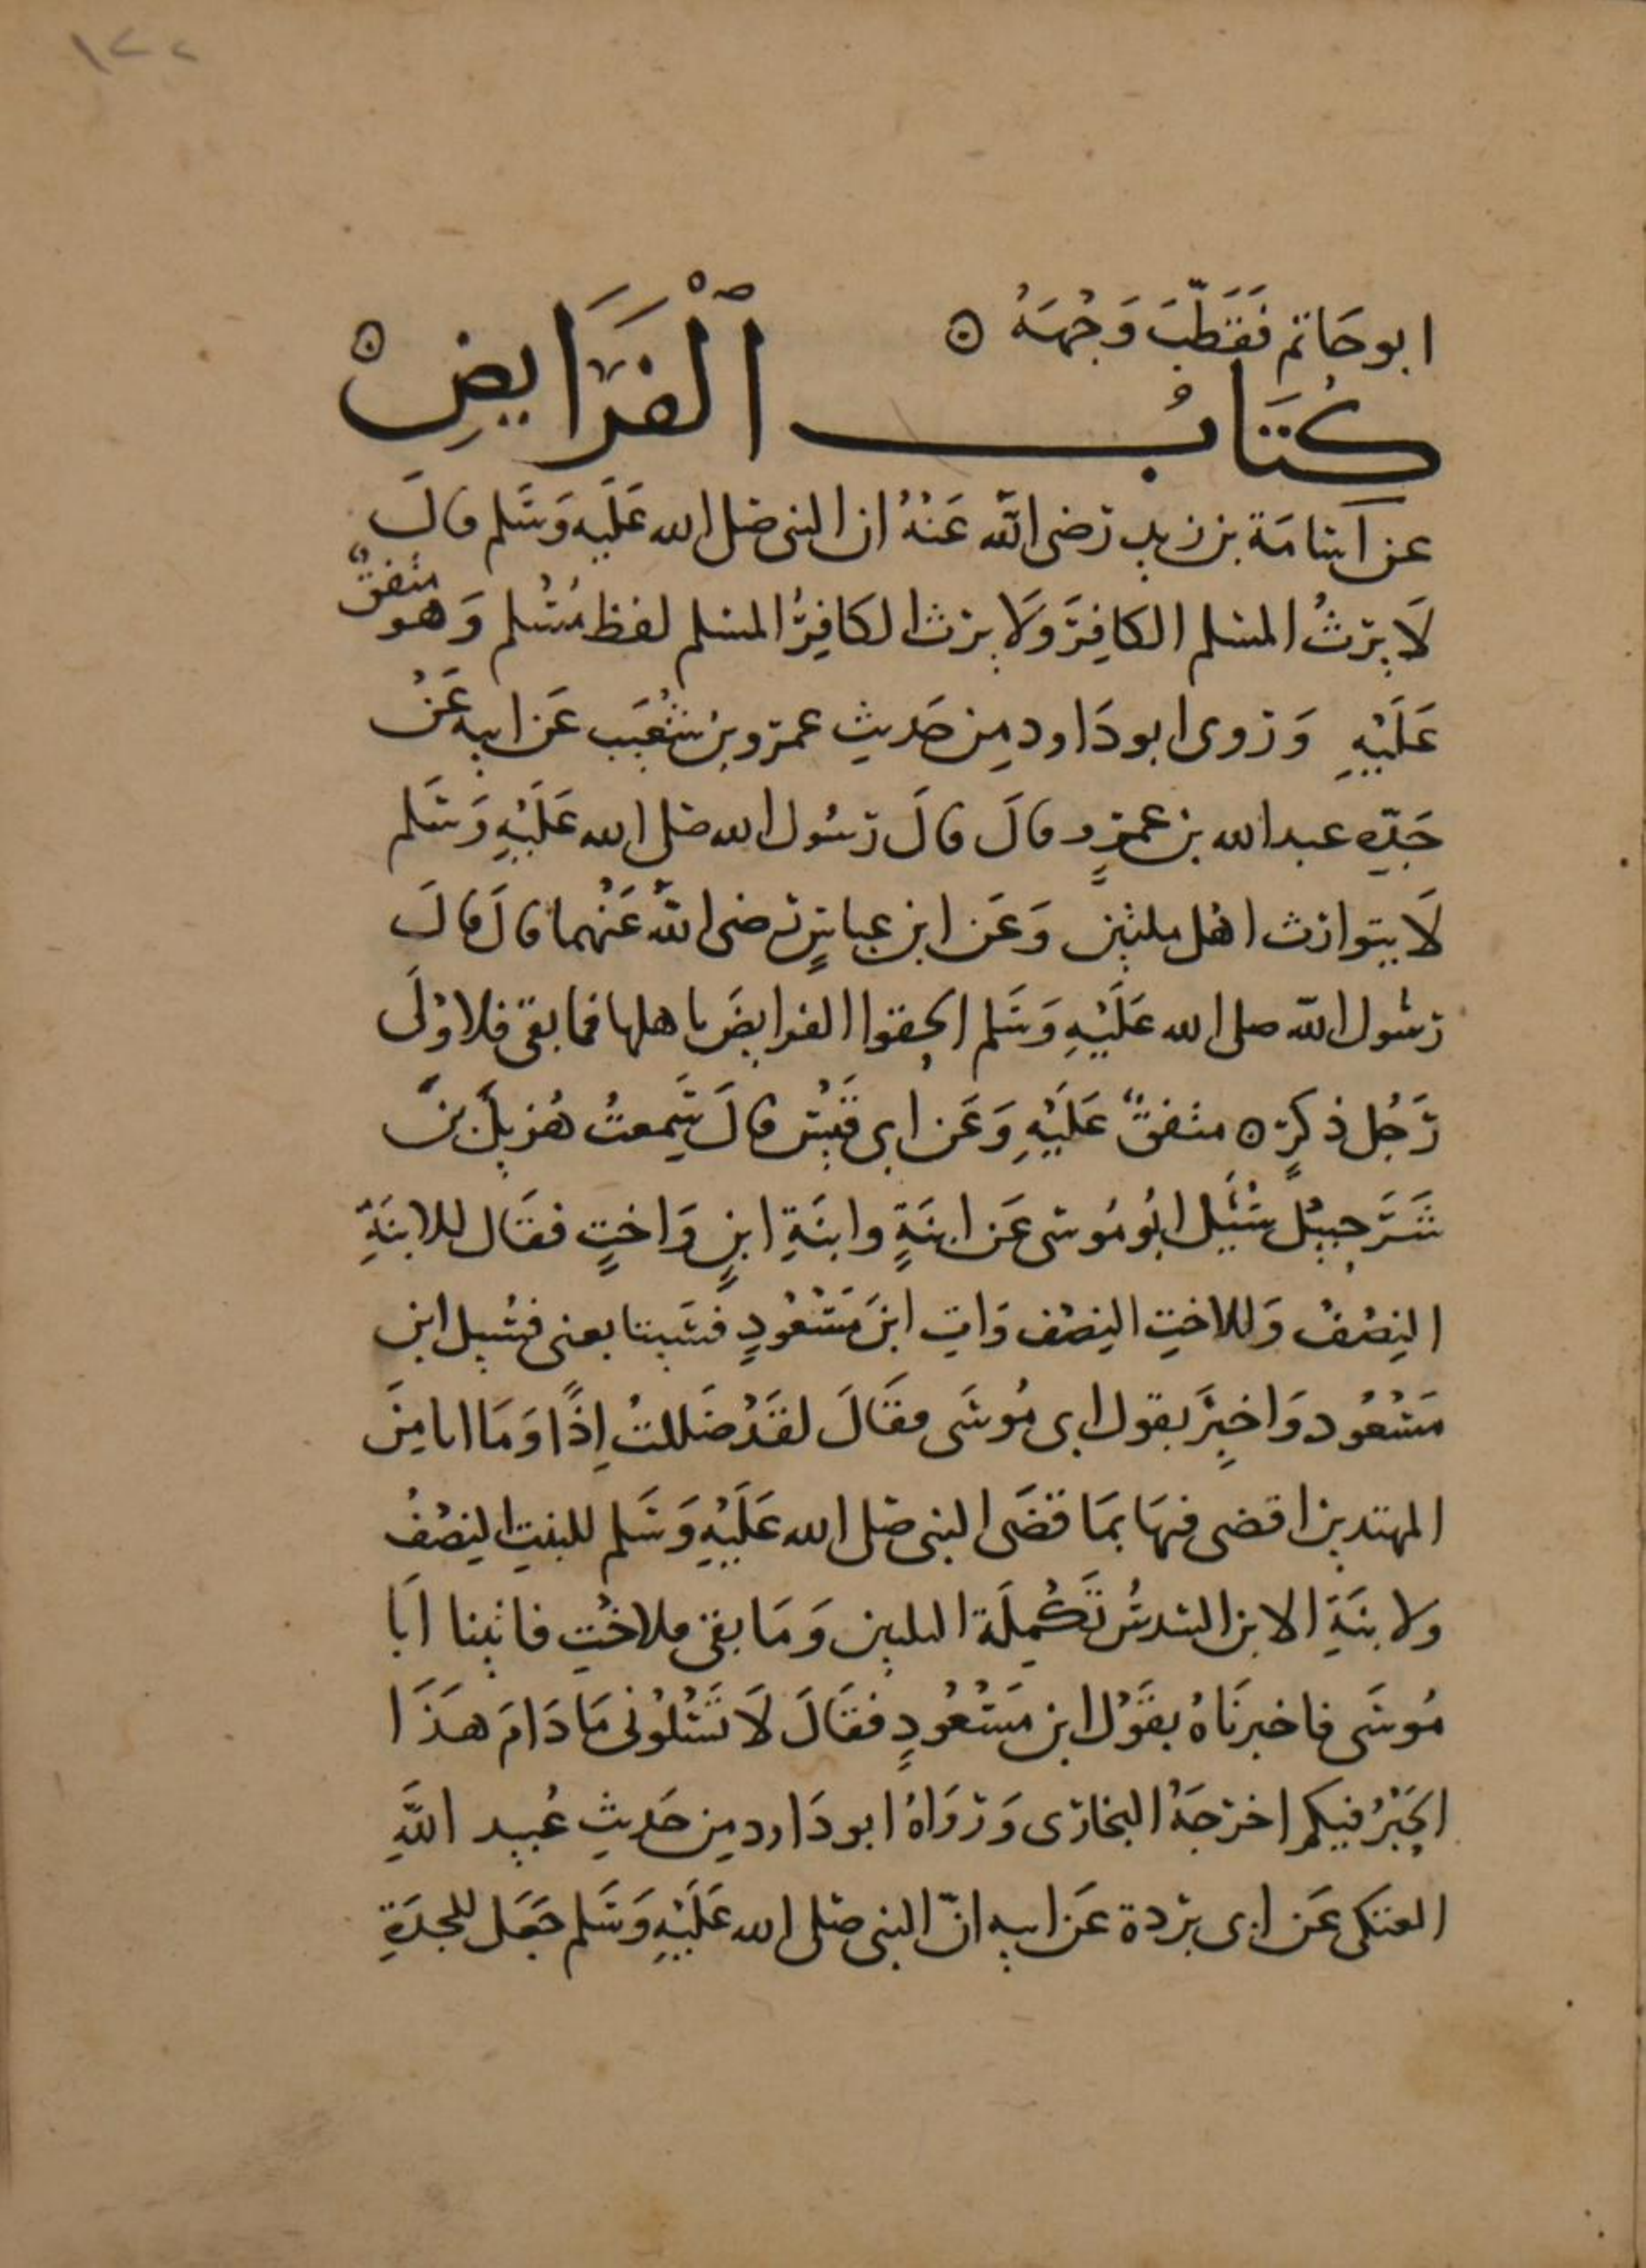 ١٢٢
ابو حَاتم فَقَطَّبَ وَجْهَهُ ه
كِتَابُ ٱلْفَرَايِضِ ه
عن اُسَامَة بن زيدٍ رَضى اللَّه عَنْهُ ان النبى صَلى الله عَلَيهِ وَسَلم قالَ
لَا يَرِثُ المسْلم الكافِرَ وَلَا يَرث الكافِرُ المسْلم لفظ مُسْلم وَهو متفقٌ
عَلَيْهِ وَرَوى ابو دَاود مِن حَديثِ عمرو بن شُعَيب عَن ابيه عَنْ
جَدِّهِ عبد الله بن عمرٍو قالَ قالَ رَسُول الله صَلى الله عَلَيْهِ وَسَلم
لَا يتوارث اهْل ملتين وَعَن ابن عباسٍ رَضى اللَّه عَنْهما قالَ قالَ
رَسُول اللَّه صلى الله عَلَيْهِ وَسَلم الحِقوا الفرايضَ باهلها فما بقى فلاوْلَى
رَجُل ذكرٍ ه متفقٌ عَلَيْهِ وَعَن ابى قَيْس قالَ سَمِعتُ هُزيلَ بنَ
شَرَحبيْل سُئِلَ ابُو مُوسَى عَن ابنَةٍ وابنَةِ ابنٍ وَاختٍ فقَال للابنَةِ
النِصْفُ وَللاختِ النِصْف وَاتِ ابنَ مَسْعُودٍ فسَيتابعنى فسُيِل ابن
مَسْعُود وَاخبِرَ بقول ابى مُوسَى فقَالَ لقَدْ ضَللتُ اِذًا وَمَا انا مِنَ
المهتدين اقضى فيهَا بمَا قضَى النبى صَلى الله عَلَيْهِ وَسَلم للبنتِ النِصْفُ
ولابنَةِ الابن السّدسُ تَكْمِلَة الثلثين وَمَا بقى فلاخُتِ فاتينا ابَا
مُوسَى فاخبرنَاهُ بقَوْل ابن مَسْعُودٍ فقَالَ لَا تَسْئلُوْنى مَا دَامَ هَذَا
الحِبَرْ فيكم اخرَجَهُ البخارَى وَرَوَاهُ ابو دَاود مِن حَديثِ عُبيد اللَّهِ
العتكى عَن ابن بريدة عَن ابيه انّ النبى صَلى الله عَلَيْهِ وَسَلم جَعَل للجدَةِ